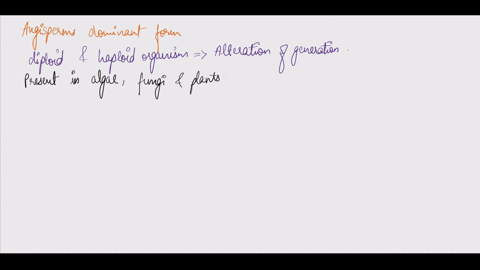 Angisperms dominant form
diploid & haploid organism => Alteration of generation.
Present in algae, fungi & plants.